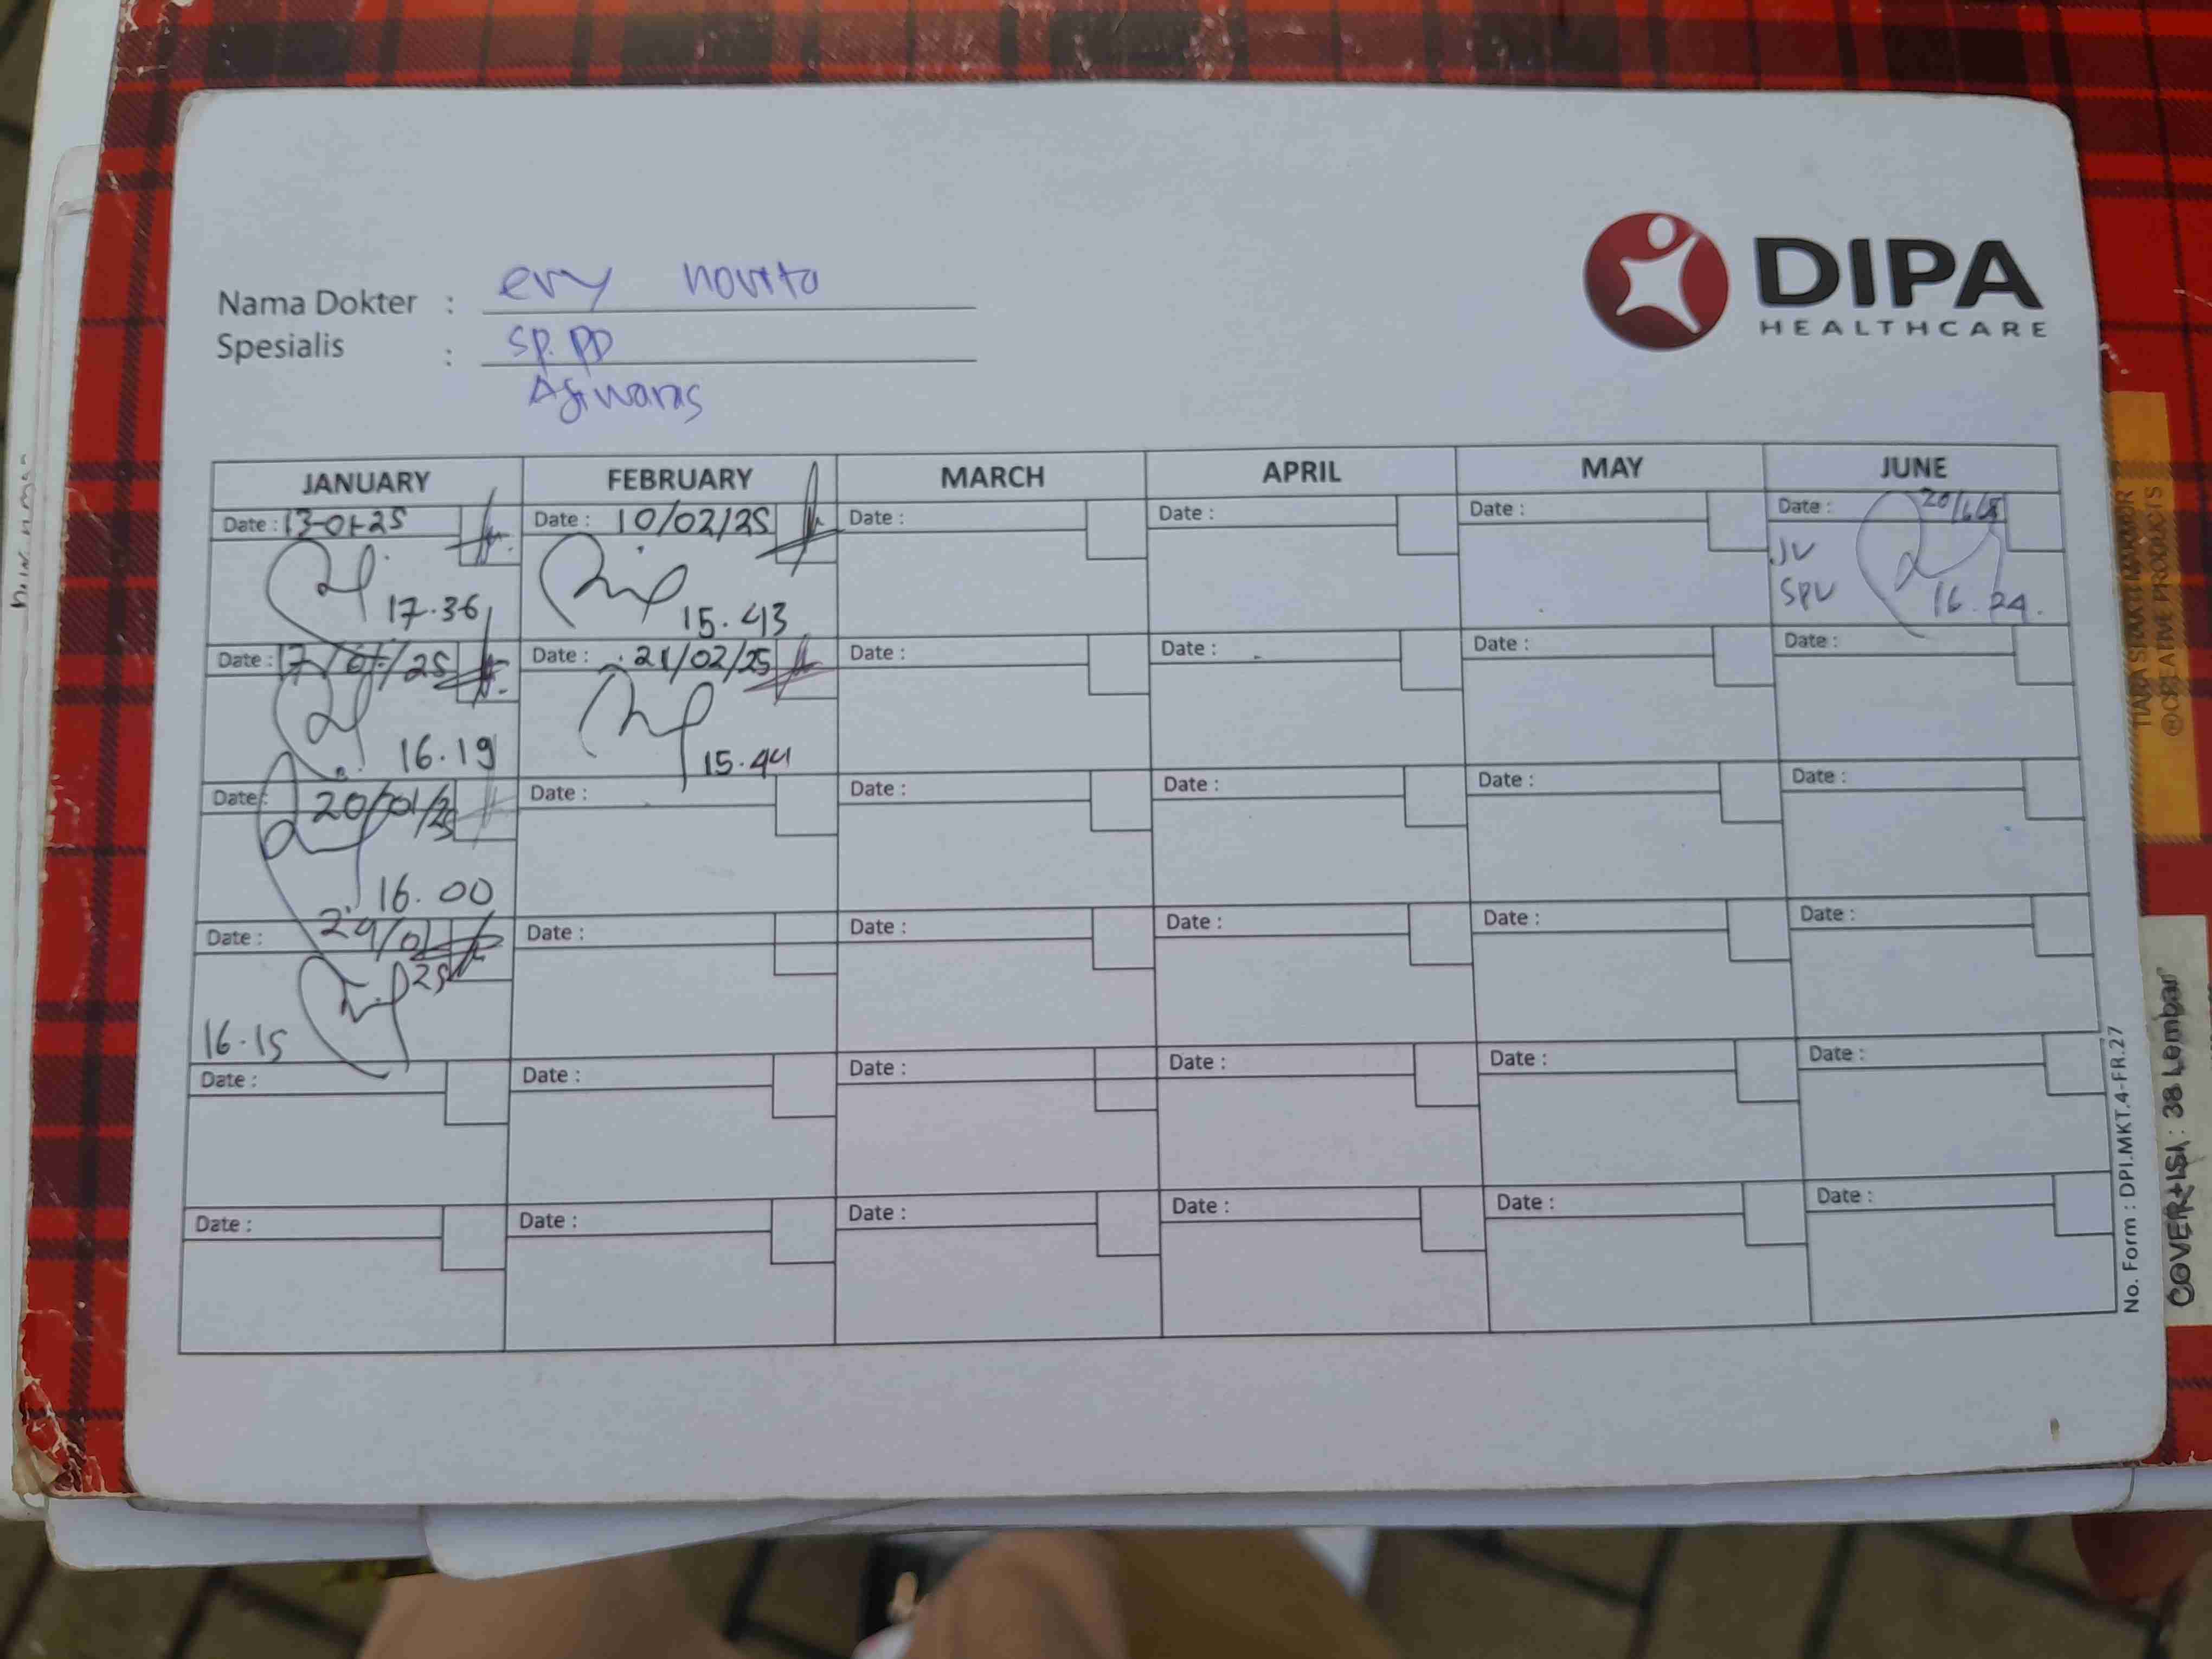 DIPA
HEALTHCARE
Nama Dokter : evy novita
Spesialis : Sp.PD
JANUARY FEBRUARY MARCH APRIL MAY JUNE
Date : 13-01-25 Date : 10/02/25 Date : Date : Date : Date : 20/6/25
JV
SPV
17.36 15.43 16.24.
Date : 17/01/25 Date : 21/02/25 Date : Date : Date : Date :
16.19 15.44
Date : 20/01/25 Date : Date : Date : Date : Date :
16.00
Date : 29/01/25 Date : Date : Date : Date : Date :
16.15
Date : Date : Date : Date : Date : Date :
Date : Date : Date : Date : Date : Date :
No. Form : DPI.MKT.4-FR.27
TIARA SHAKTI MAKMUR
®CREATIVE PRODUCTS
COVER+ISI : 38 Lembar